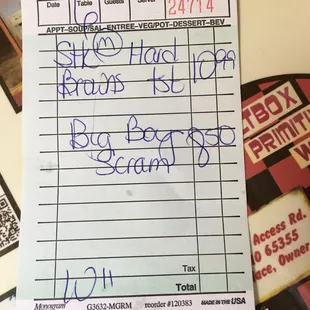 Date Table Guests Server
6
24714
APPT-SOUP/SAL-ENTREE-VEG/POT-DESSERT-BEV
Stk M Hard 10.99
Browns tst
Big Boy 8.50
Scram
W11
Tax
Total
Monogram G3632-MGRM reorder #120383 MADE IN THE USA
PRIMITI
Access Rd.
O 65355
ace, Owner